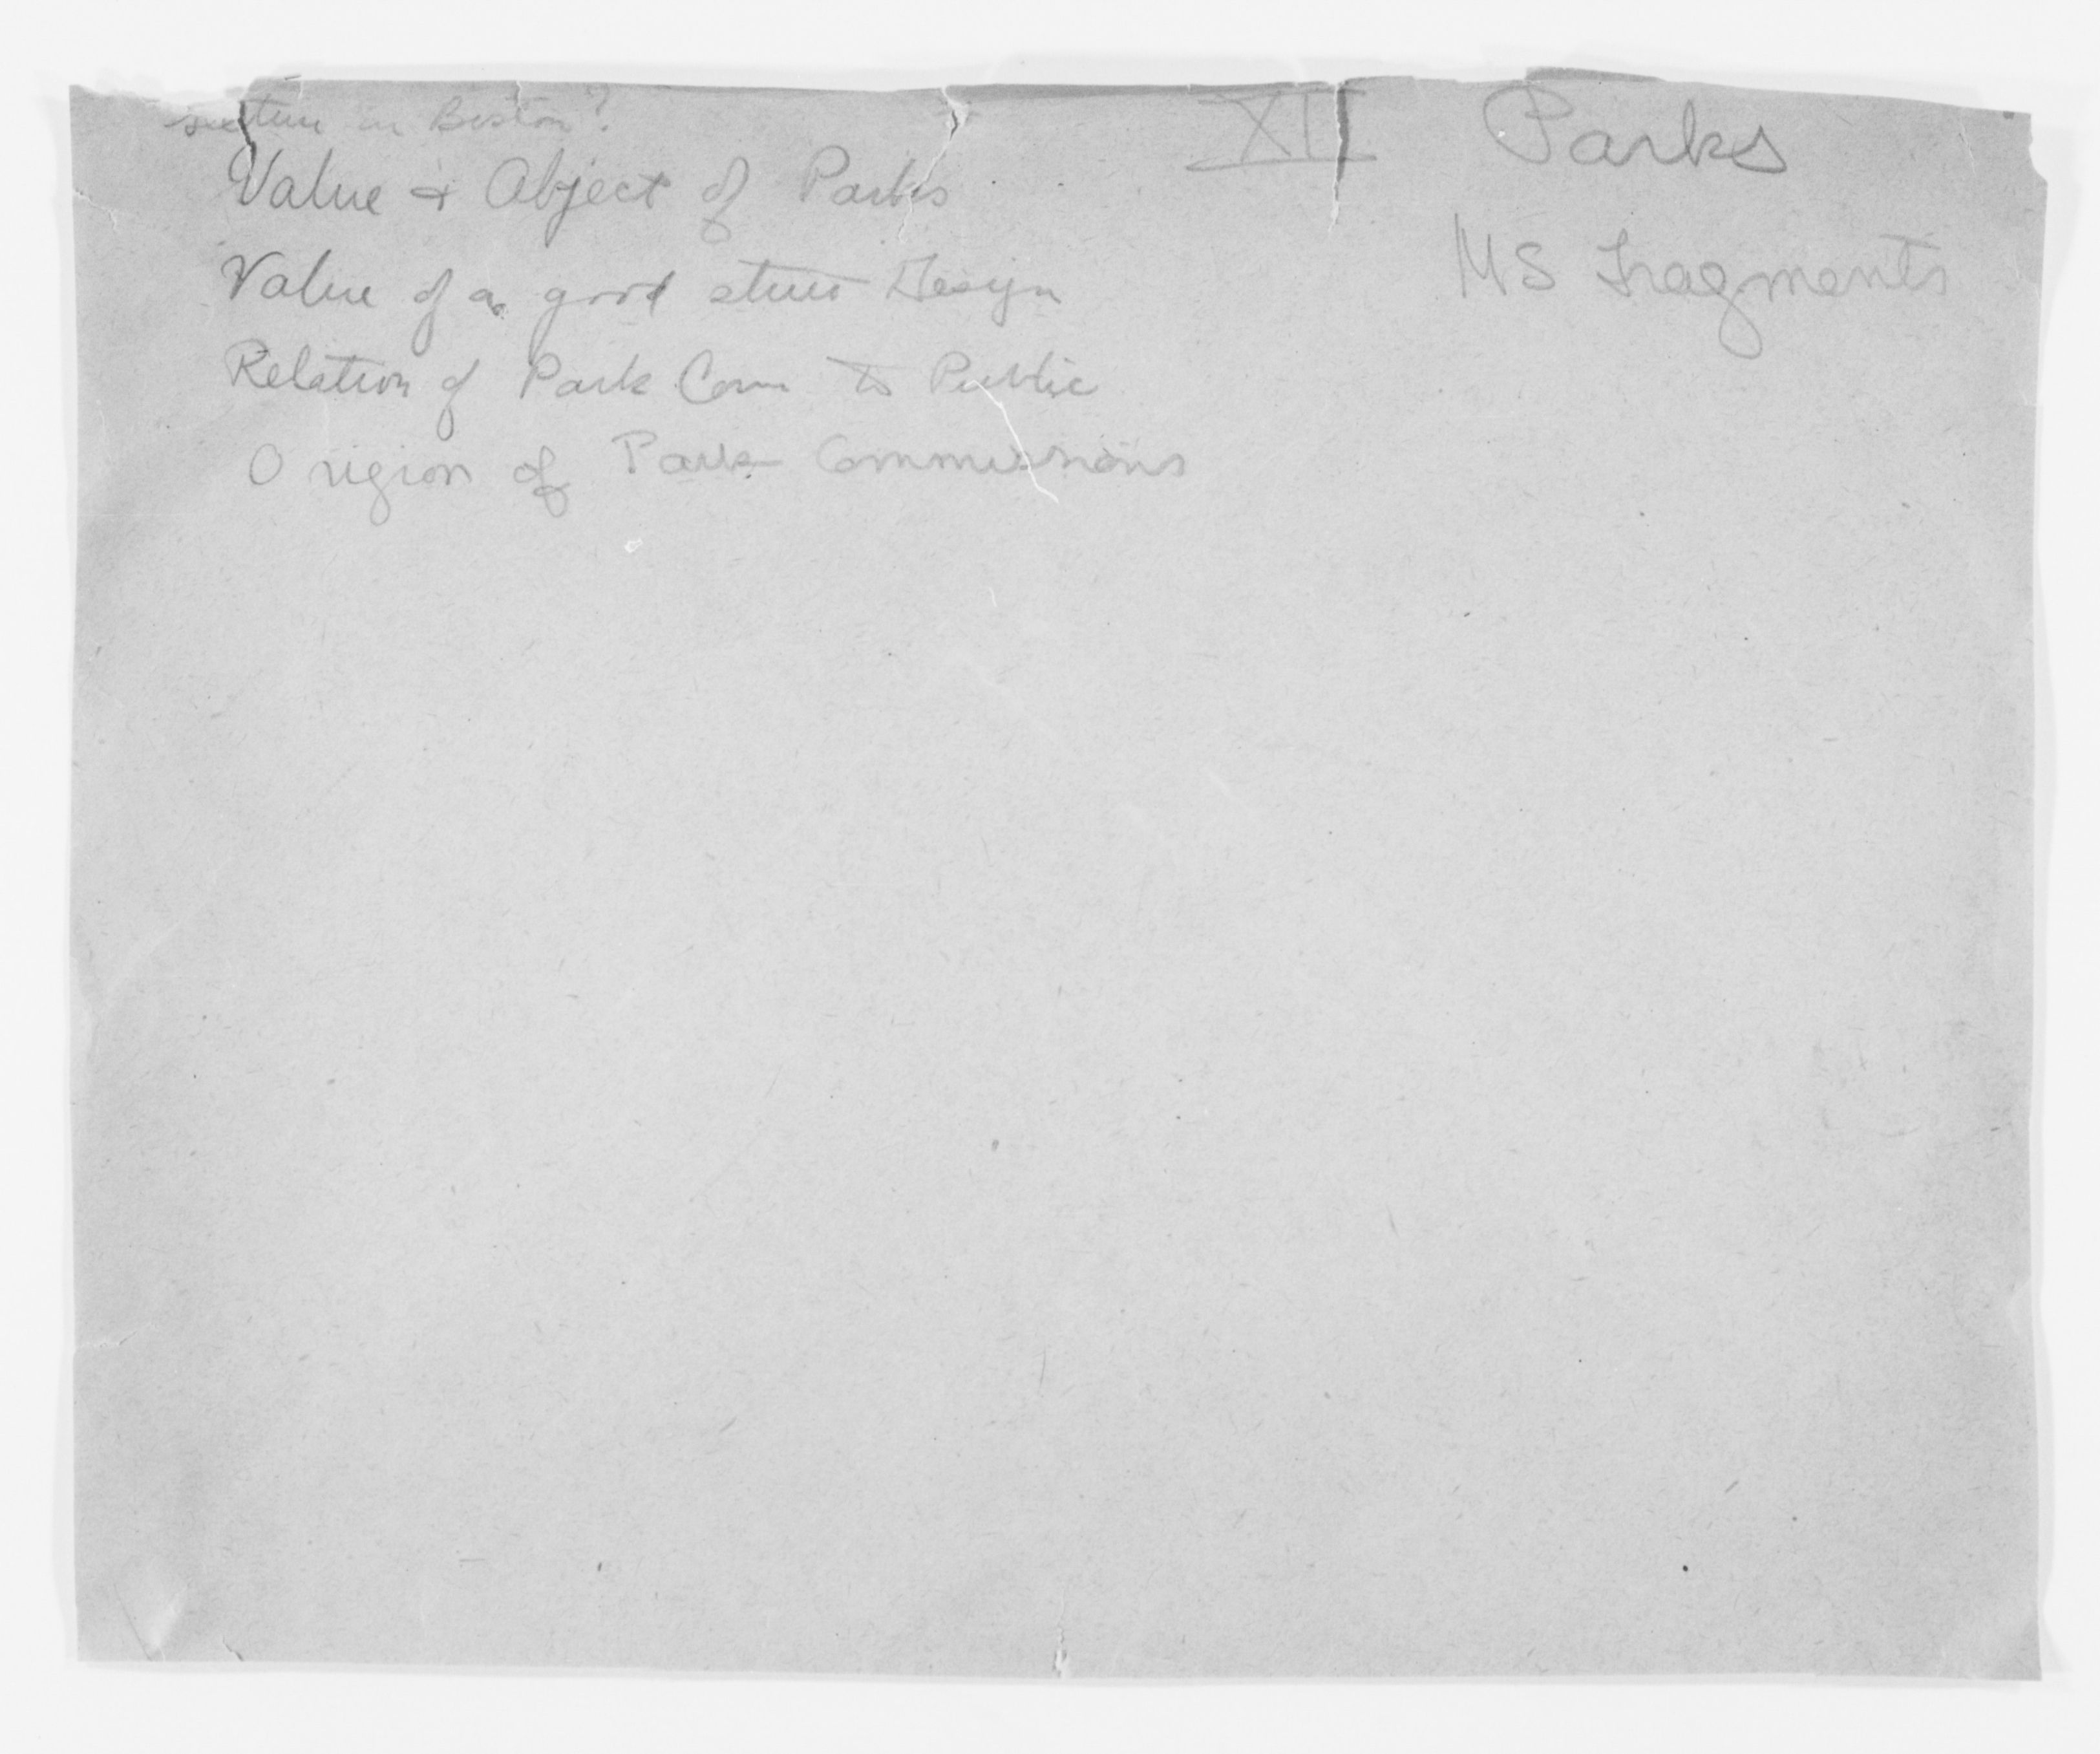 in Boston?
Value & Object of Parks
Value of a good street Design
Relation of Park Com to Public
Origion of Park Commissions
XII Parks
MS Fragments